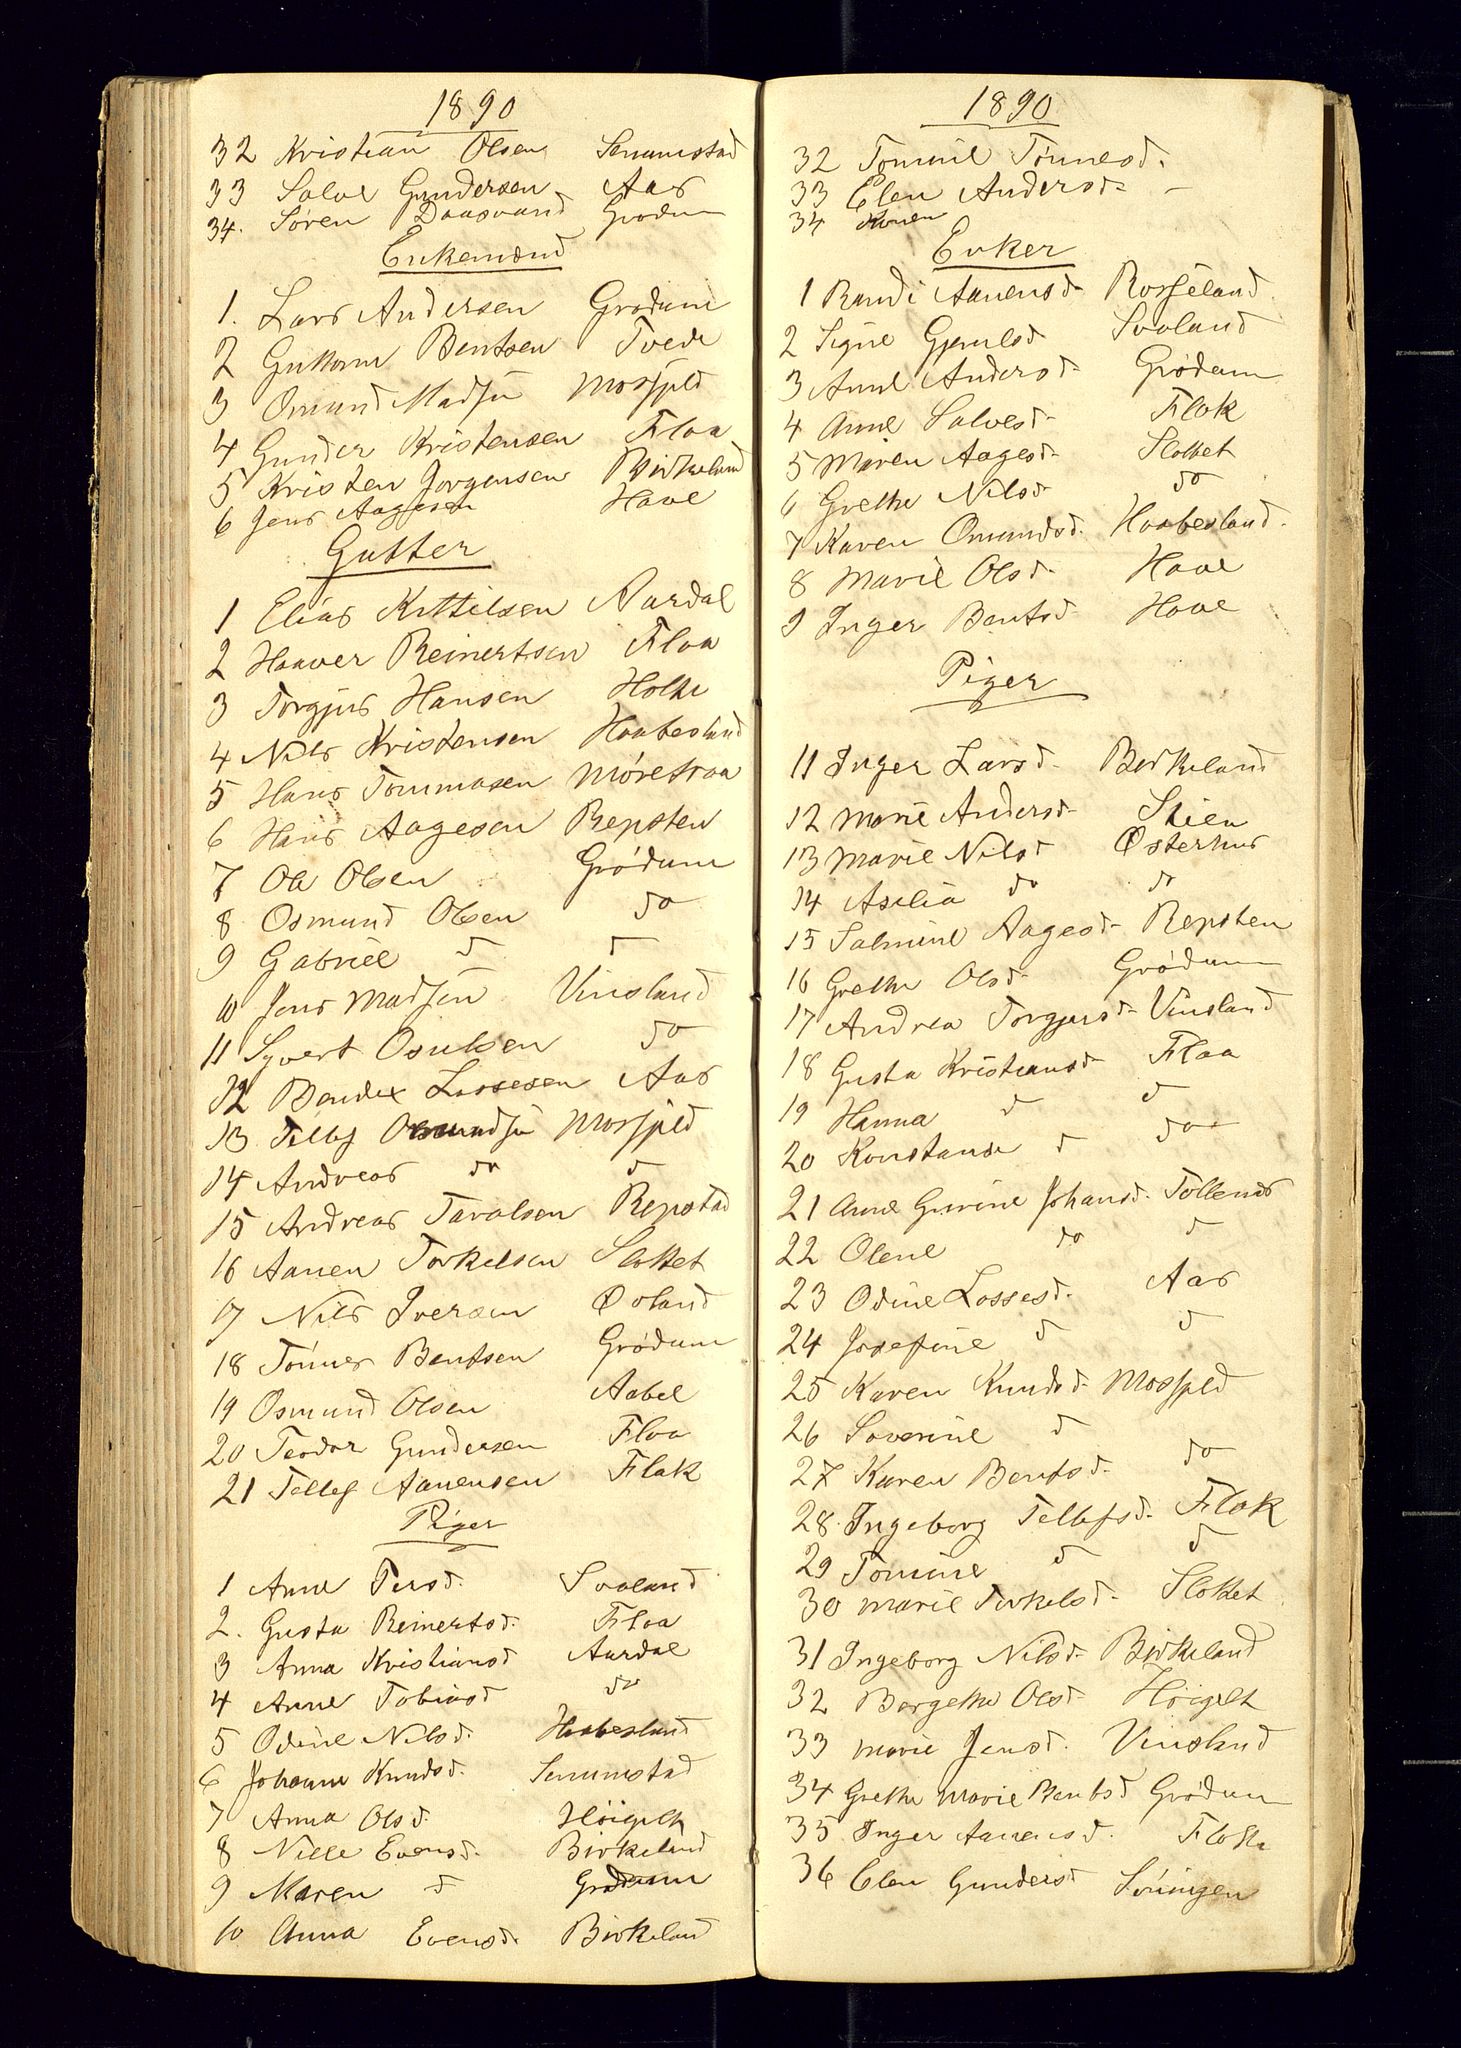 1890
32 Kristian Olsen Senumstad
33 Salve Gundersen Aas
34. Sören Daasvand Grödum
Enkemænd
1. Lars Andersen Grødum
2 Guttorm Bentsen Tvede
3 Omund Madsen Mosfjeld
4 Gunder Kristensen Floa
5 Kristen Jorgensen Birkeland
6 Jens Aagesen Have
Gutter
1 Elias Kittilsen Aardal
2 Haaver Reinertsen Floa
3 Torgjus Hansen Holte
4 Nils Kristensen Haabesland
5 Hans Tommasen Møretraa
6 Hans Aagesen Repsten
7 Ole Olsen Grødum
8 Osmund Olsen do
9 Gabriel d d
10 Jens Madsen Vinsland
11 Syvert Osulsen do
12 Bendix Lossesen Aas
13 Tellef Osmundsen Mosfjeld
14 Andreas do d
15 Andreas Taralsen Repstad
16 Aanen Torkelsen Slottet
17 Nils Iversen Øvland
18 Tönnes Bentsen Grödum
19 Osmund Olsen Aabel
20 Teodor Gundersen Floa
21 Tellef Aanensen Flak
Piger
1 Anne Tersd. Svaland
2. Gusta Reinertsd. Floa
3 Anna Kristiansd Aardal
4 Anne Tobiasd do
5 Odine Nilsd. Haabesland
6 Johanne Knudsd. Senumstad
7 Anna Olsd. Höigilt
8 Nille Evensd. Birkeland
9 Maren d Grødum
10 Anna Evensd. Birkeland
1890
32 Tomine Tønnesd.
33 Elen Andersd -
34 Konen
Enker
1 Randi Aanensd. Rosseland
2 Signe Gjerulsd Svaland
3 Anne Andersd. Grødum
4 Anne Salvesd. Flak
5 Maren Aagesd. Slottet
6 Grethe Nilsd. do
7 Karen Omundsd. Haabesland.
8 Marie Olsd. Have
9 Inger Bentsd. Have
Piger
11 Inger Larsd. Birkeland
12 Marie Andersd. Skien
13 Marie Nilsd Østerhus
14 Aselia do do
15 Salmine Aagesd. Repsten
16 Grethe Olsd. Grödum
17 Andrea Torgjusd. Vinsland
18 Gusta Kristiansd. Floa
19 Hanna d d
20 Konstanse d do
21 Anne Gurine Johansd. Tollenes
22 Olene do d
23 Odine Lossesd. Aas
24 Josefine d d
25 Karen Knudsd. Mosfjeld
26 Soverine d
27 Karen Bentsd. do
28. Ingeborg Tellefsd. Flak
29 Tomine d d
30 Marie Torkelsd. Slottet
31 Ingeborg Nilsd. Birkeland
32 Bergethe Olsd. Höigilt
33 Marie Jensd. Vinsland
34 Grethe Marie Bentsd Grødum
35 Inger Aanensd.
36 Elen Gundersd